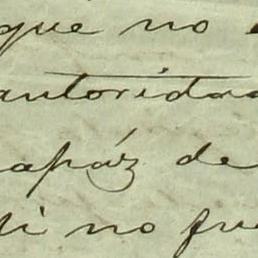 que no
autorida
apáz de
si no fue